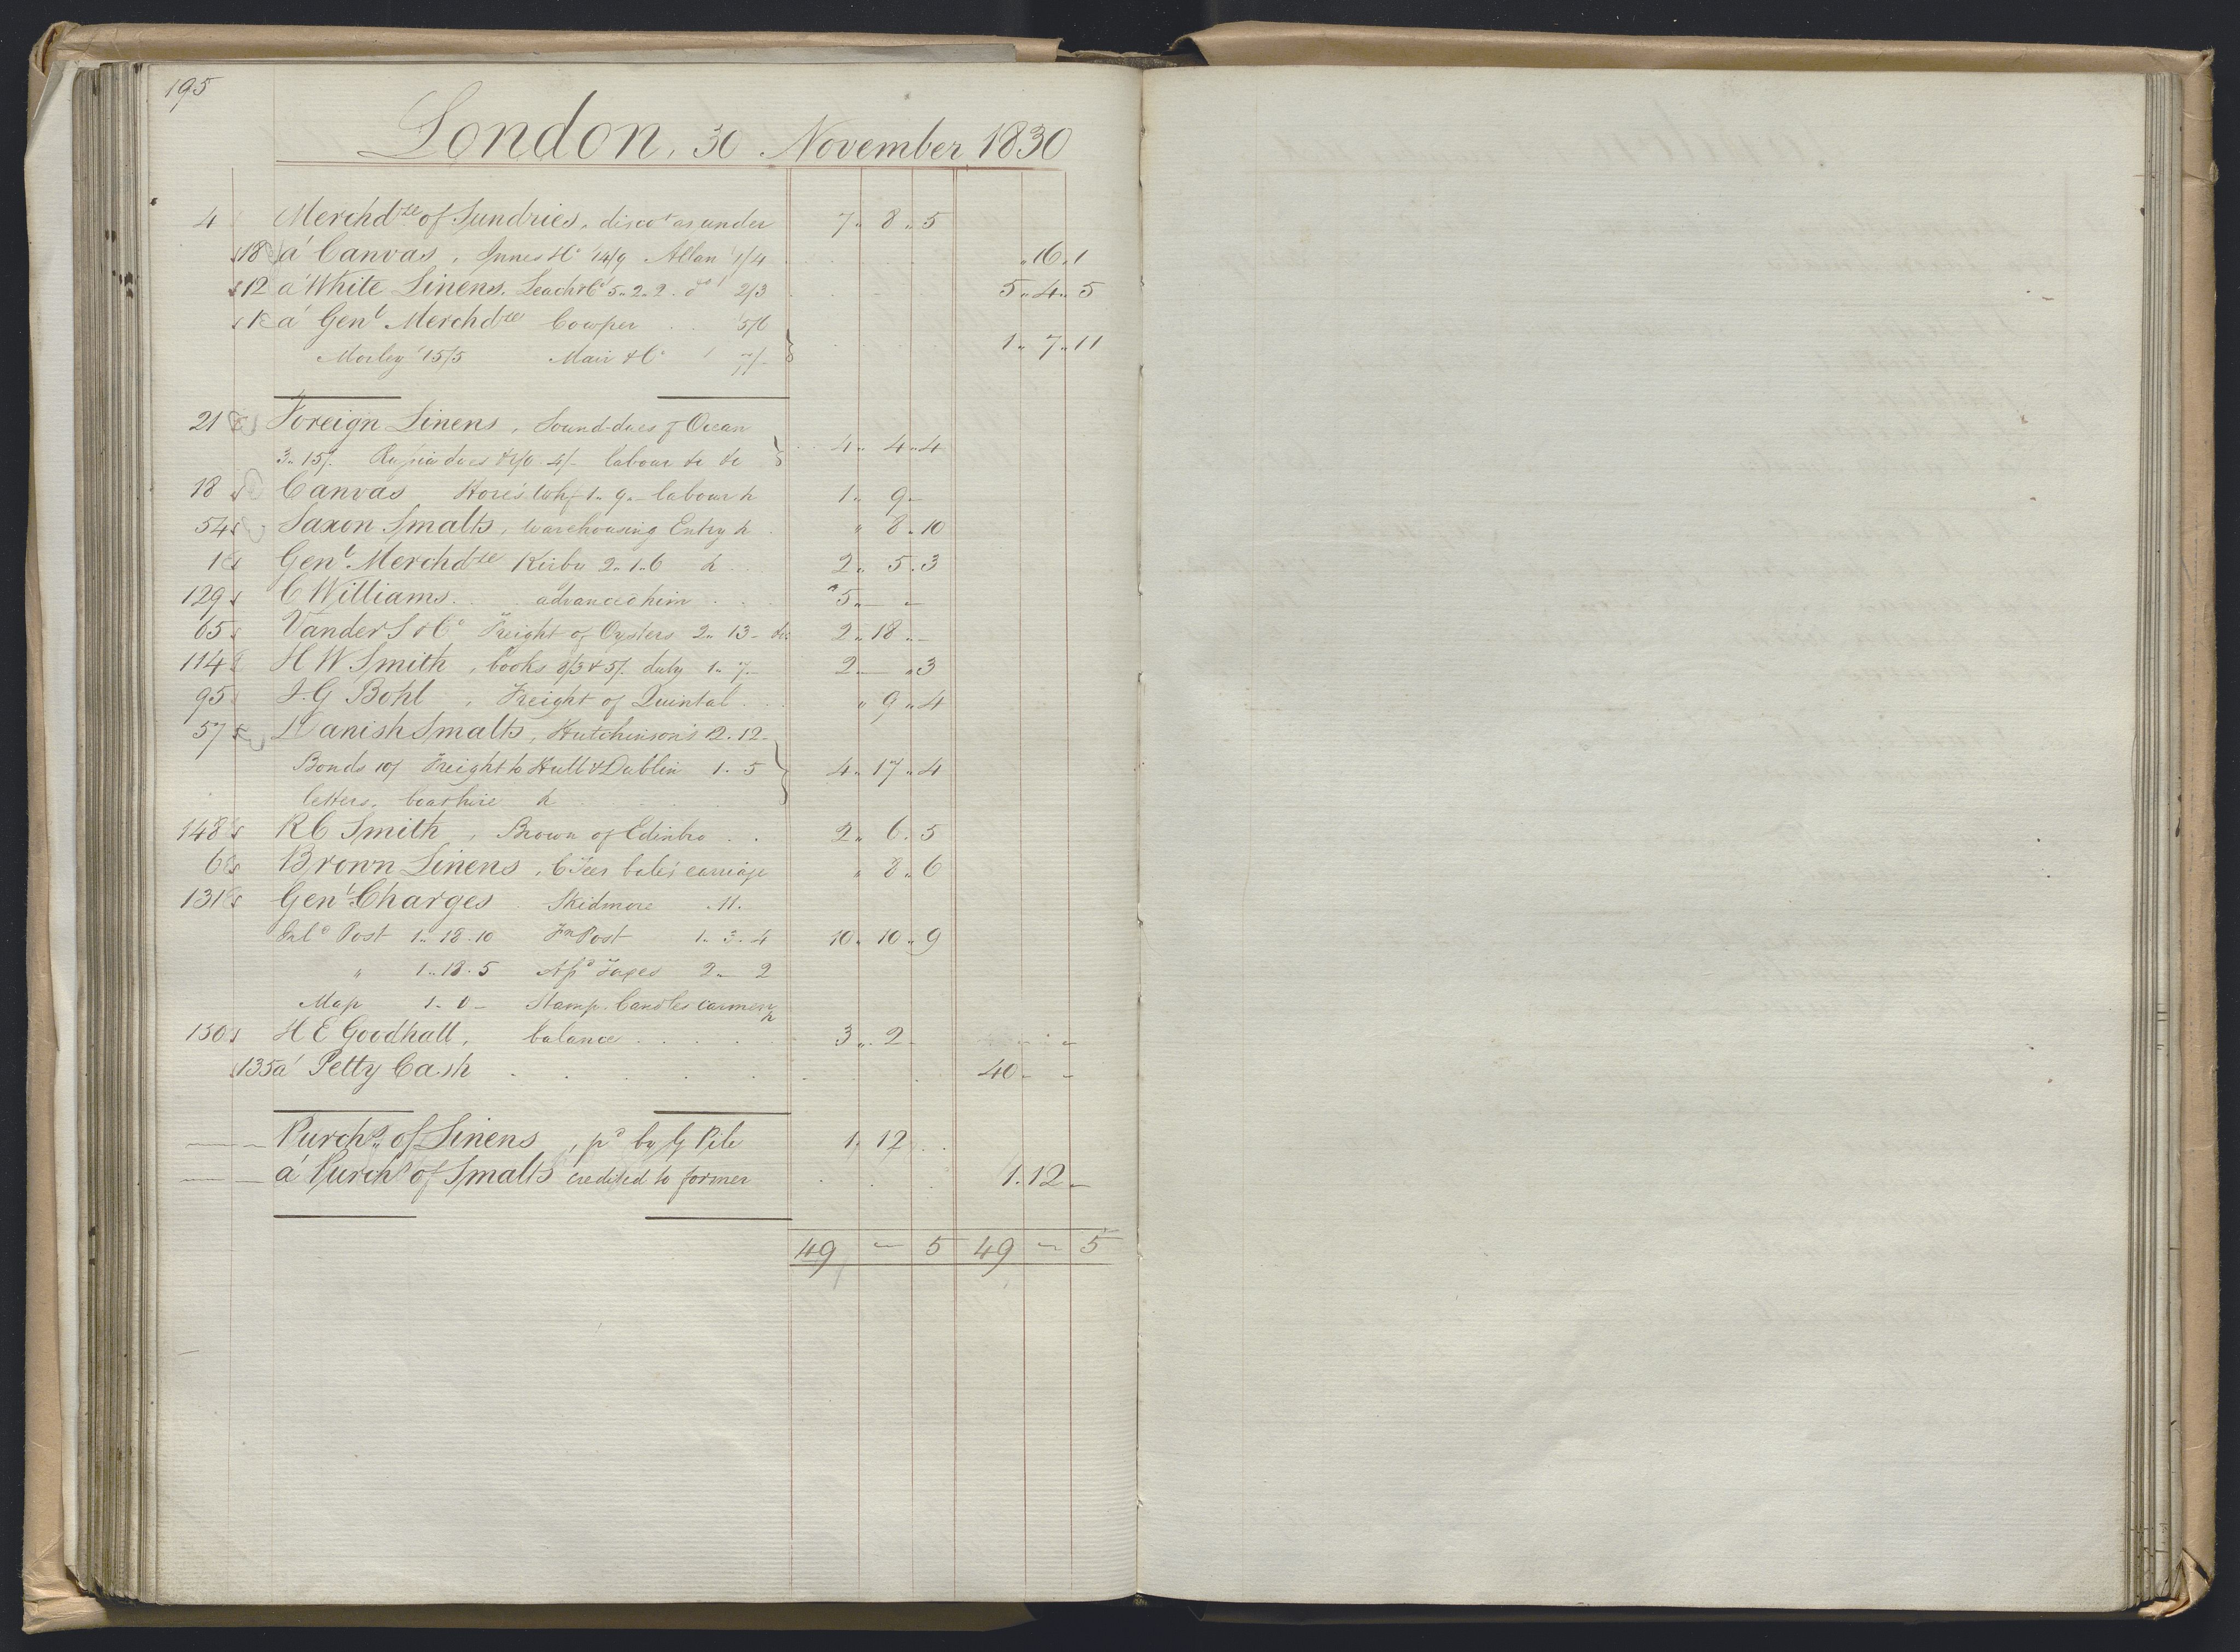 195
London, 30 November 1830
4 Merchdze of Sundries, discot as under 7 " 8 " 5
18 á Canvas, Innes & Co 14/9 Allan 1/4 " 16 " 1
12 á White Linens. Leach & Co 5 " 2 " 2 . do 2/3 5 " 4 " 5
16 á Genl Merchdze Cowper . . 5/6
Morley 15/5 Mair & Co 7/- } 1 " 7 " 11
21 Foreign Linens, Sound-dues of Ocean
3 " 15/. Russia dues 4/- labour &c &c } 4 " 4 " 4
18 Canvas, Hore's Whf 1 " 9 " - labour &c 1 " 9 -
54 Saxon Smalts, warehousing Entry &c " 8 " 10
16 Genl Merchdze Kirby 2 " 1 " 6 &c 2 " 5 . 3
129 C Williams . . advanced him . . . 5 " - " -
65 Vander S & Co Freight of Oysters 2 " 13 - &c 2 " 18 " -
114 H W Smith, books 8/3 & 5/. duty 1 " 7 - 2 - " 3
95 J. G Bohl, Freight of Quintal . . . " 9 " 4
57 Danish Smalts, Hutchinson's 2 . 12 -
Bonds 10/ Freight to Hull & Dublin 1 . 5 } 4 " 17 " 4
letters, boat hire &c
148 R C Smith, Brown of Edinbro . . 2 " 6 . 5
66 Brown Linens, bale's carriage " 8 " 6
131 Genl Charges Skidmore . 11 .
Inld Post 1 " 18 . 10 Fn Post 1 . 3 . 4 10 " 10 " 9
" 1 " 18 . 5 Assd Taxes 2 - 2
Map 1 - Stamp. Candles carmen &c
130 H E Goodhall, balance . . . . 3 " 2 -
135 á Petty Cash . . . . . 40 - -
Purchs of Linens, pd by G Pile 1 . 12 . .
á Purchs of Smalts credited to former . . . 1 . 12 -
49 - 5 49 - 5